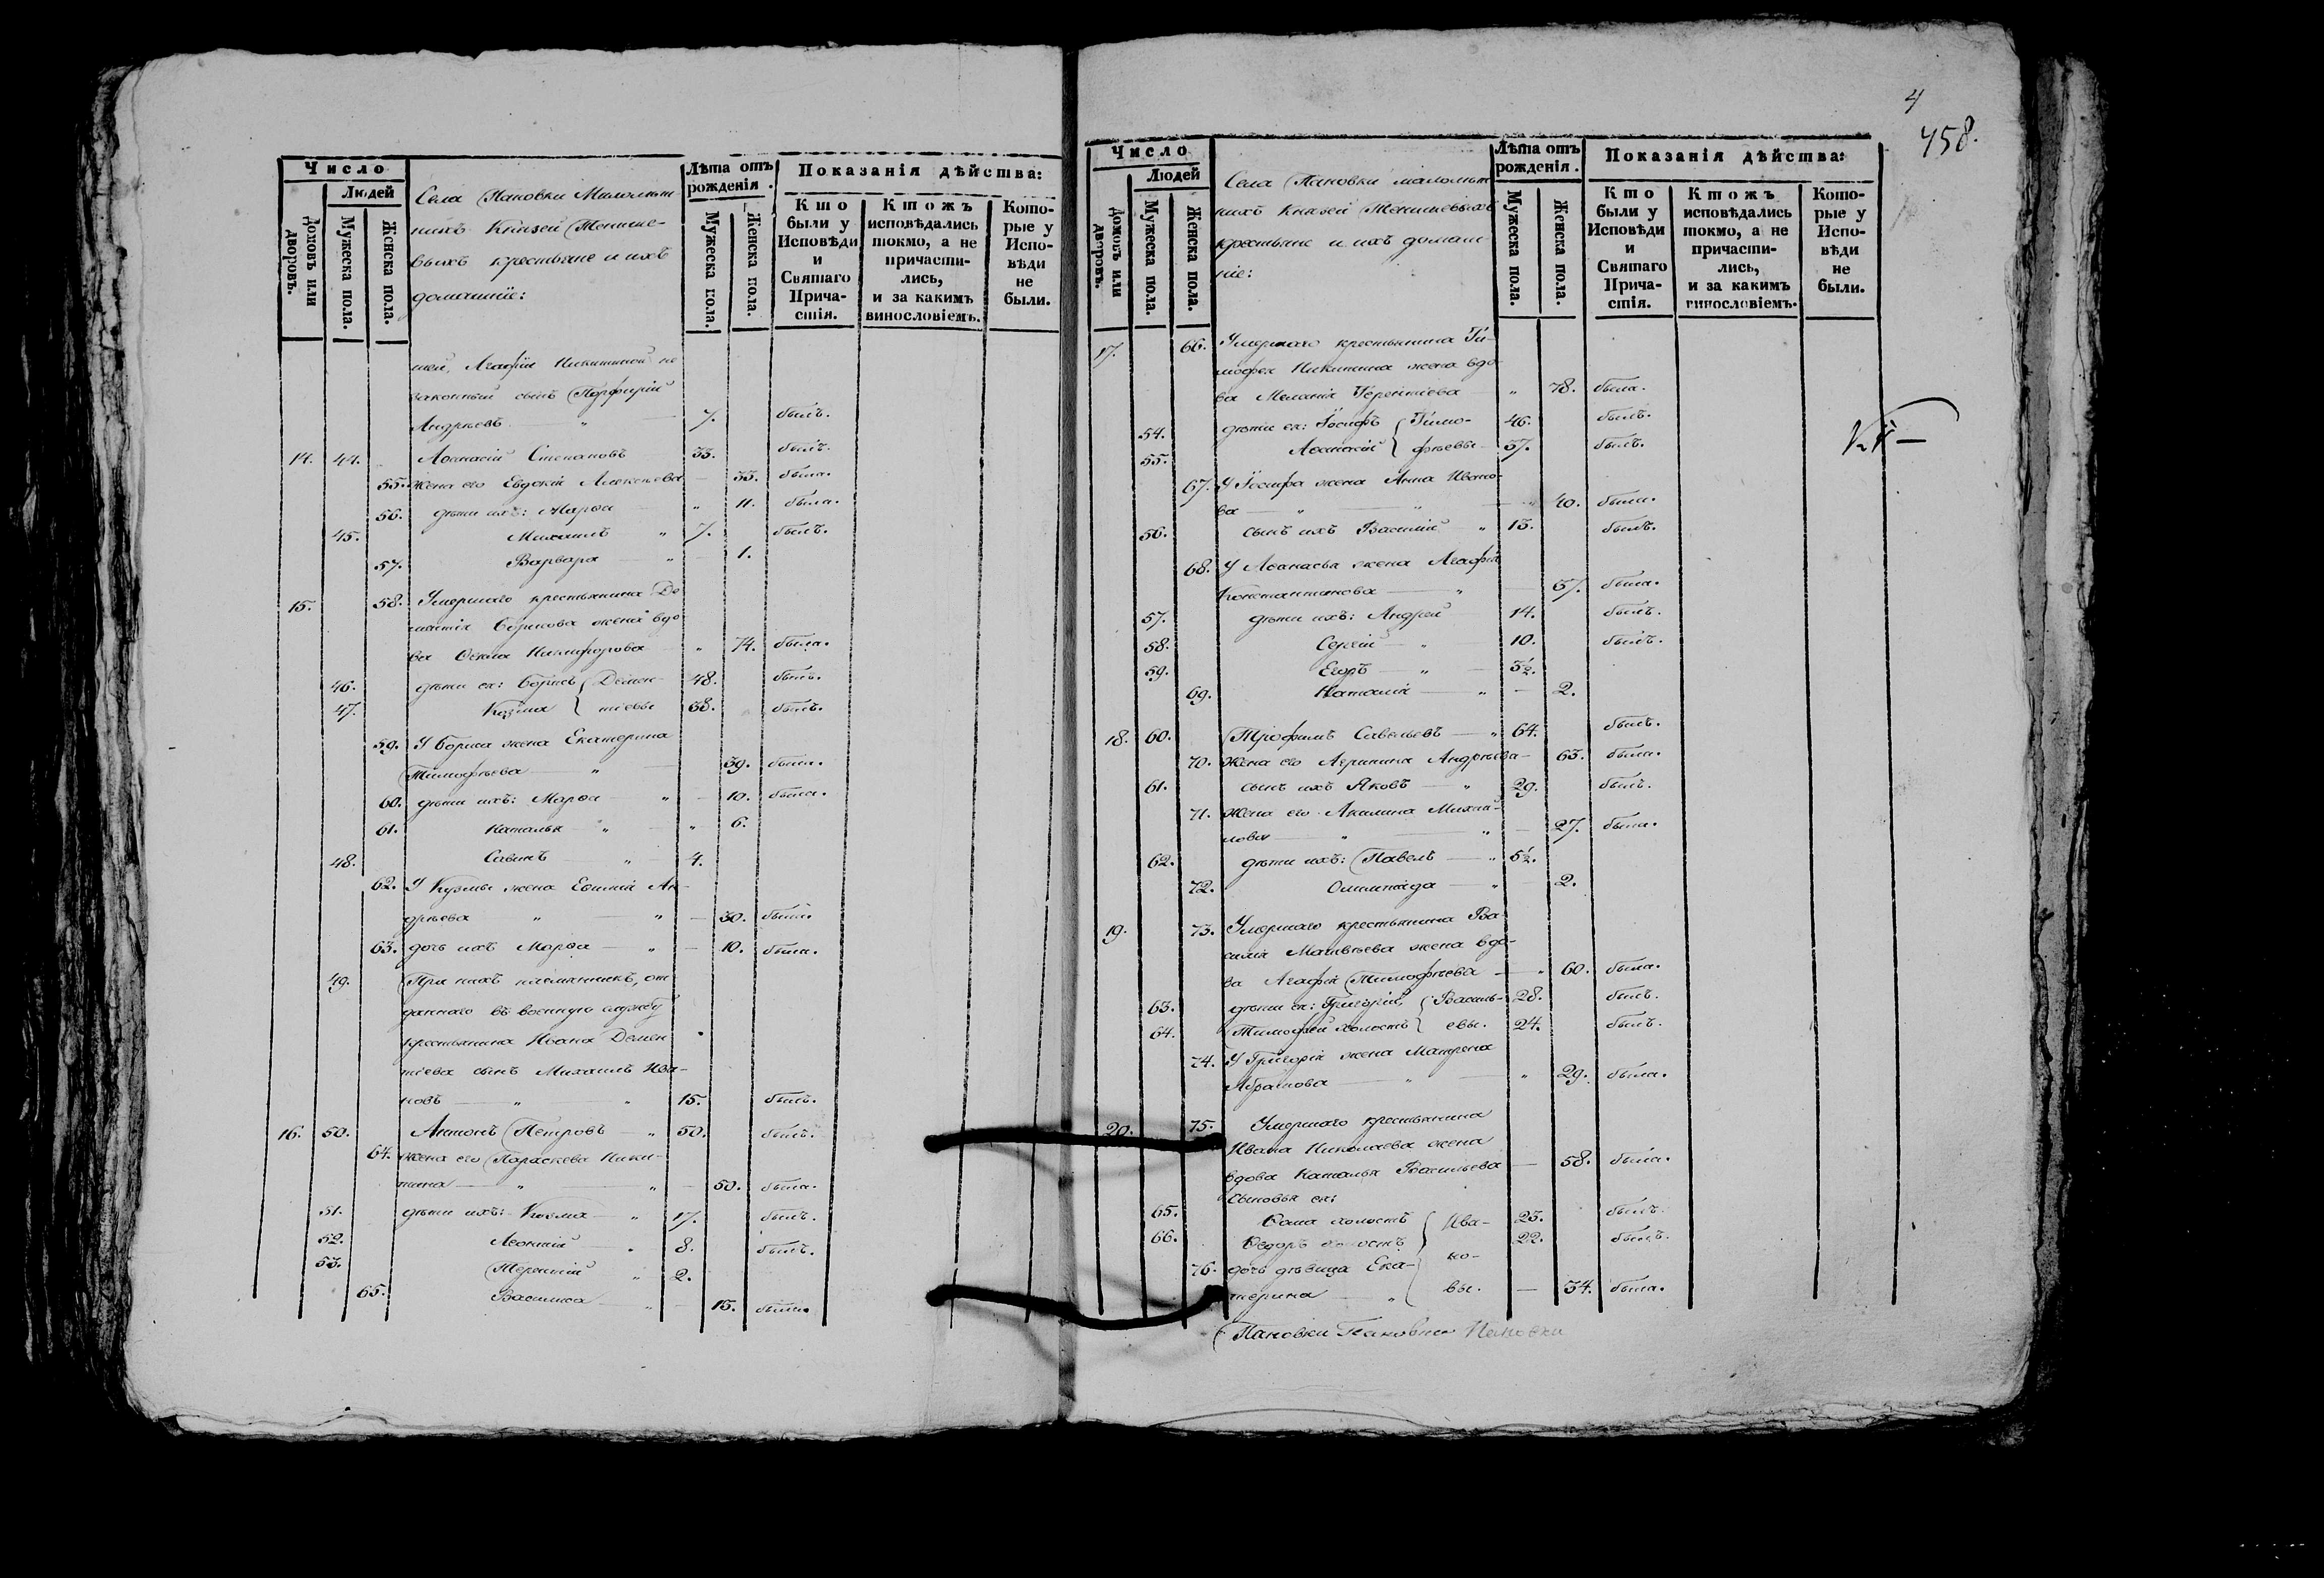 Число
Людей
Домовъ или дворовъ.
Мужеска пола.
Женска пола.
Села Пановки Малолѣт
нихъ Князей Тенише-
выхъ крестьяне и ихъ
домашніе:
Лѣта отъ рожденія.
Мужеска пола.
Женска пола.
Показанія дѣйства:
Кто были у Исповѣди и Святаго Причастія.
Ктожъ исповѣдались токмо, а не причастились, и за какимъ винословіемъ.
Которые у Исповѣди не были.
ней, Агафіи Никитиной не
законный сынъ Порфирій
Андреевъ " 7. былъ.
14. 44. Аѳанасій Степановъ 33. былъ.
55. жена его Евдокія Алексѣева — 33. была.
56. дѣти ихъ: Марѳа " 11. была.
45. Михаилъ " 7. былъ.
57. Варвара " — 1.
15. 58. Умершаго крестьянина Де
ментія Борисова жена вдо
ва Ѳекла Никифорова " 74. была.
46. дѣти ея: Борисъ { Демен- 48. былъ.
47. Козма { тіевы 38. былъ.
59. У Бориса жена Екатерина
Тимофѣева " — 39. была.
60. дѣти ихъ: Марѳа " — 10. была.
61. Наталья " — " 6.
48. Савинъ " — 4.
62. У Кузмы жена Евѳимія Ан-
дрѣева " — " — 30. была.
63. дочь ихъ Марѳа — " — 10. была.
49. При нихъ племянникъ, от
даннаго въ военную службу
крестьянина Ивана Демен
тіева сынъ Михаилъ Ива-
новъ — " " 15. былъ.
16. 50. Антонъ Петровъ — " 50. былъ.
64. жена его Параскева Ники-
тина — " " — 50. была.
51. дѣти ихъ: Козма — " 17. былъ.
52. Леонтій 8. былъ.
53. Терентій " 2.
65. Василиса " — 13. была.
4
458.
Число
Людей
Домовъ или дворовъ.
Мужеска пола.
Женска пола.
Села Пановки малолѣт
нихъ Князей Тенишевыхъ
крестьяне и ихъ домаш-
ніе:
Лѣта отъ рожденія.
Мужеска пола.
Женска пола.
Показанія дѣйства:
Кто были у Исповѣди и Святаго Причастія.
Ктожъ исповѣдались токмо, а не причастились, и за какимъ винословіемъ.
Которые у Исповѣди не были.
17. 66. Умершаго крестьянина Ти-
мофея Никитина жена вдо
ва Меланія Терентіева " 78. была.
54. дѣти ея: Іосифъ { Тимо- 46. былъ.
55. Аѳанасій { фѣевы 37. былъ.
67. У Іосифа жена Анна Ивано-
ва — " " — " 40. была.
56. сынъ ихъ Василій " 13. былъ.
68. У Аѳанасья жена Агафія
Константинова — " — 37. была.
57. дѣти ихъ: Андрей 14. былъ.
58. Сергій — " 10. былъ.
59. Егоръ — " — 3½.
69. Наталія — " — 2.
18. 60. Трофимъ Савельевъ — " 64. былъ.
70. жена его Агрипина Андрѣева — 63. была.
61. сынъ ихъ Яковъ — " 29. былъ.
71. жена его Акилина Михай-
лова " " — 27. была.
62. дѣти ихъ: Павелъ — " 5½.
72. Олимпіада — " — 2.
19. 73. Умершаго крестьянина Ва-
силія Матвѣева жена вдо-
ва Агафія Тимофѣева — " 60. была.
63. дѣти ея: Григорій, { Василь- 28. былъ.
64. Тимофей холостъ { евы. 24. былъ.
74. У Григорія жена Матрена
Абрамова — " — " 29. была.
20. 75. Умершаго крестьянина
Ивана Николаева жена
вдова Наталья Васильева — 58. была.
Сыновья ея:
65. Ѳома холостъ { Ива- 23. былъ.
66. Ѳедоръ холостъ { но- 22. былъ.
76. дочь дѣвица Ека-
терина " { вы. — 34. была.
Пановки Пановки Пановки